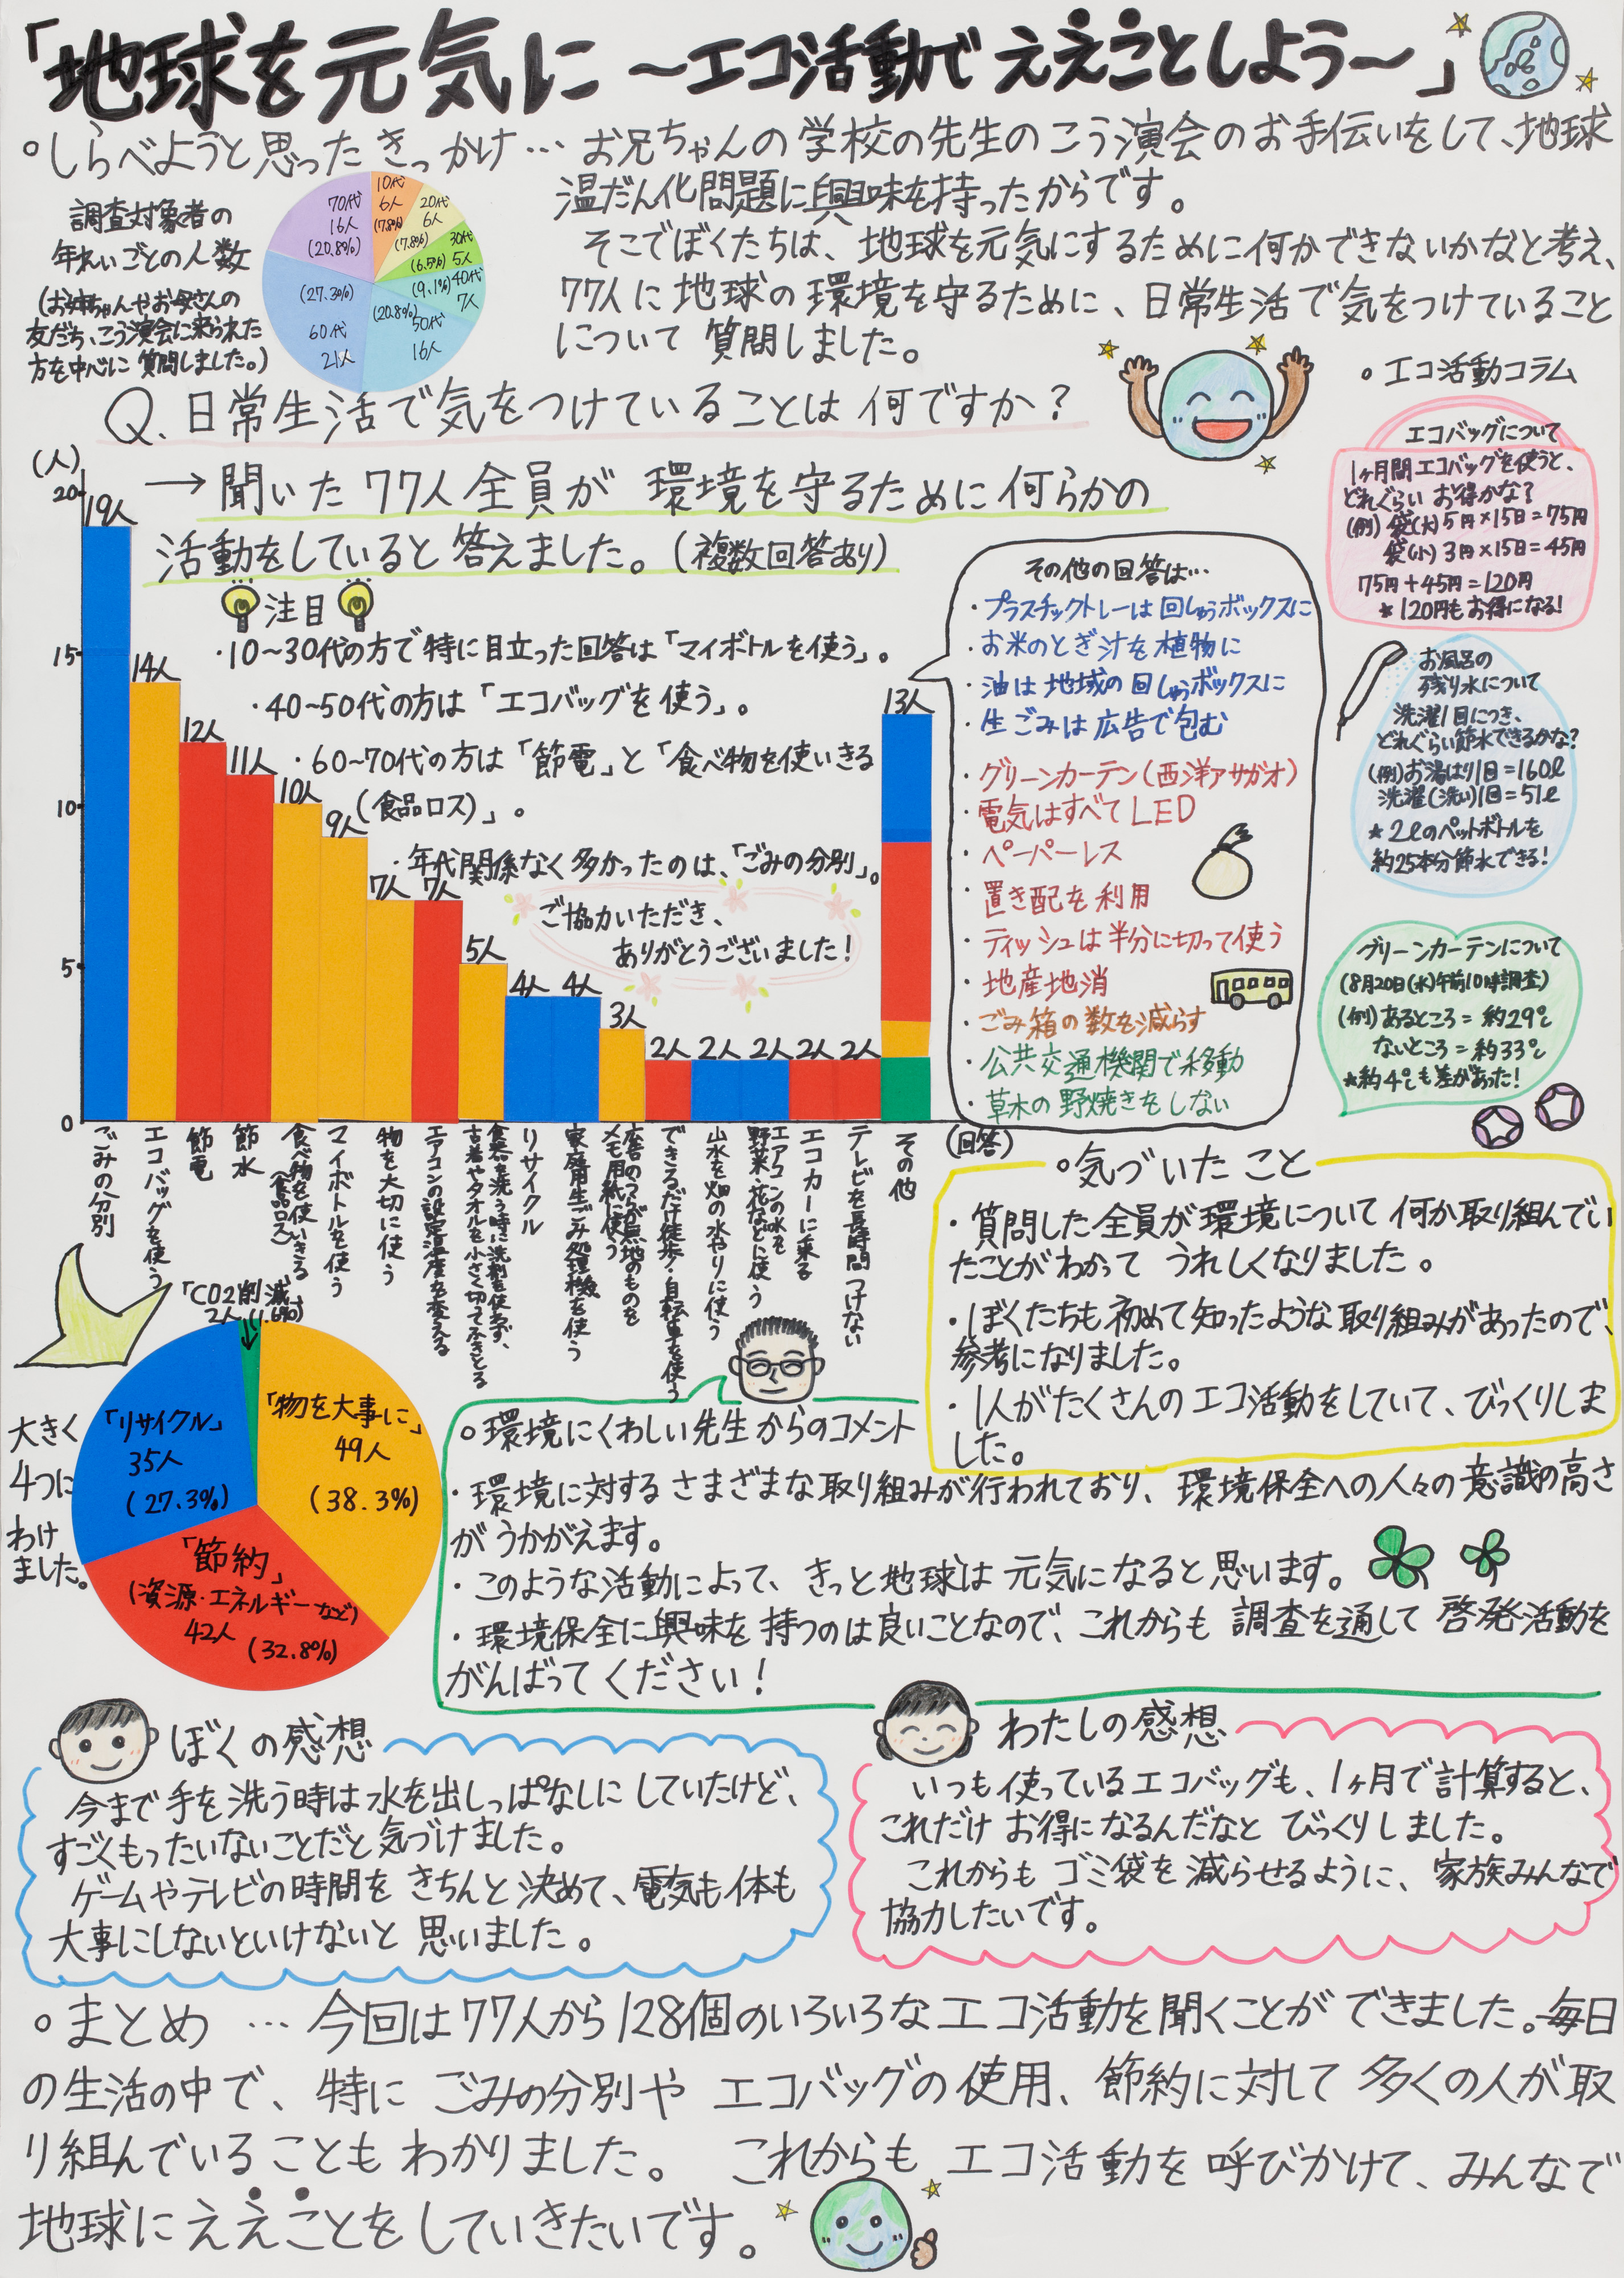 「地球を元気に ～エコ活動で ええことしよう～」
○しらべようと思ったきっかけ… お兄ちゃんの学校の先生のこう演会のお手伝いをして、地球
温だん化問題に興味を持ったからです。
そこでぼくたちは、地球を元気にするために何かできないかなと考え、
77人に地球の環境を守るために、日常生活で気をつけていること
について質問しました。
調査対象者の
年れいごとの人数
(お姉ちゃんやお母さんの
友だち、こう演会に来られた
方を中心に質問しました。)
10代
6人
(7.8%)
20代
6人
(7.8%)
30代
5人
(6.5%)
40代
7人
(9.1%)
50代
16人
(20.8%)
60代
21人
(27.3%)
70代
16人
(20.8%)
Q.日常生活で気をつけていることは何ですか？
→聞いた77人全員が環境を守るために何らかの
活動をしていると答えました。(複数回答あり)
注目
・10～30代の方で特に目立った回答は「マイボトルを使う」。
・40~50代の方は「エコバッグを使う」。
・60~70代の方は「節電」と「食べ物を使いきる
(食品ロス)」。
・年代関係なく多かったのは、「ごみの分別」。
ご協力いただき、
ありがとうございました！
(人)
20
15
10
5
0
19人
14人
12人
11人
10人
9人
7人
7人
5人
4人
4人
3人
2人
2人
2人
2人
2人
13人
ごみの分別
エコバッグを使う
節電
節水
食べ物を使いきる
(食品ロス)
マイボトルを使う
物を大切に使う
エアコンの設定温度を変える
食器を洗う時に洗剤を使わず、
古着やタオルを小さく切ってふきとる
リサイクル
家庭用生ごみ処理機を使う
広告のうらが無地のものを
メモ用紙に使う
できるだけ徒歩・自転車を使う
山水を畑の水やりに使う
エアコンの水を
野菜・花などに使う
エコカーに乗る
テレビを長時間つけない
その他
(回答)
その他の回答は…
・プラスチックトレーは回しゅうボックスに
・お米のとぎ汁を植物に
・油は地域の回しゅうボックスに
・生ごみは広告で包む
・グリーンカーテン(西洋アサガオ)
・電気はすべてLED
・ペーパーレス
・置き配を利用
・ティッシュは半分に切って使う
・地産地消
・ごみ箱の数を減らす
・公共交通機関で移動
・草木の野焼きをしない
○エコ活動コラム
エコバッグについて
1ヶ月間エコバッグを使うと、
どれぐらいお得かな？
(例)袋(大)5円×15日=75円
袋(小)3円×15日=45円
75円+45円=120円
★120円もお得になる！
お風呂の
残り水について
洗濯1回につき、
どれぐらい節水できるかな？
(例)お湯はり1回=160ℓ
洗濯(洗い)1回=51ℓ
★2ℓのペットボトルを
約25本分節水できる！
グリーンカーテンについて
(8月20日(水)午前10時調査)
(例)あるところ=約29℃
ないところ=約33℃
★約4℃も差があった！
○気づいたこと
・質問した全員が環境について何か取り組んでい
たことがわかってうれしくなりました。
・ぼくたちも初めて知ったような取り組みがあったので、
参考になりました。
・1人がたくさんのエコ活動をしていて、びっくりしま
した。
大きく
4つに
わけ
ました。
「CO2削減」
2人(1.6%)
「物を大事に」
49人
(38.3%)
「リサイクル」
35人
(27.3%)
「節約」
(資源・エネルギーなど)
42人
(32.8%)
○環境にくわしい先生からのコメント
・環境に対するさまざまな取り組みが行われており、環境保全への人々の意識の高さ
がうかがえます。
・このような活動によって、きっと地球は元気になると思います。
・環境保全に興味を持つのは良いことなので、これからも調査を通して啓発活動を
がんばってください！
ぼくの感想
今まで手を洗う時は水を出しっぱなしにしていたけど、
すごくもったいないことだと気づけました。
ゲームやテレビの時間をきちんと決めて、電気も体も
大事にしないといけないと思いました。
わたしの感想
いつも使っているエコバッグも、1ヶ月で計算すると、
これだけお得になるんだなとびっくりしました。
これからもゴミ袋を減らせるように、家族みんなで
協力したいです。
○まとめ … 今回は77人から128個のいろいろなエコ活動を聞くことができました。毎日
の生活の中で、特にごみの分別やエコバッグの使用、節約に対して多くの人が取
り組んでいることもわかりました。 これからもエコ活動を呼びかけて、みんなで
地球にええことをしていきたいです。